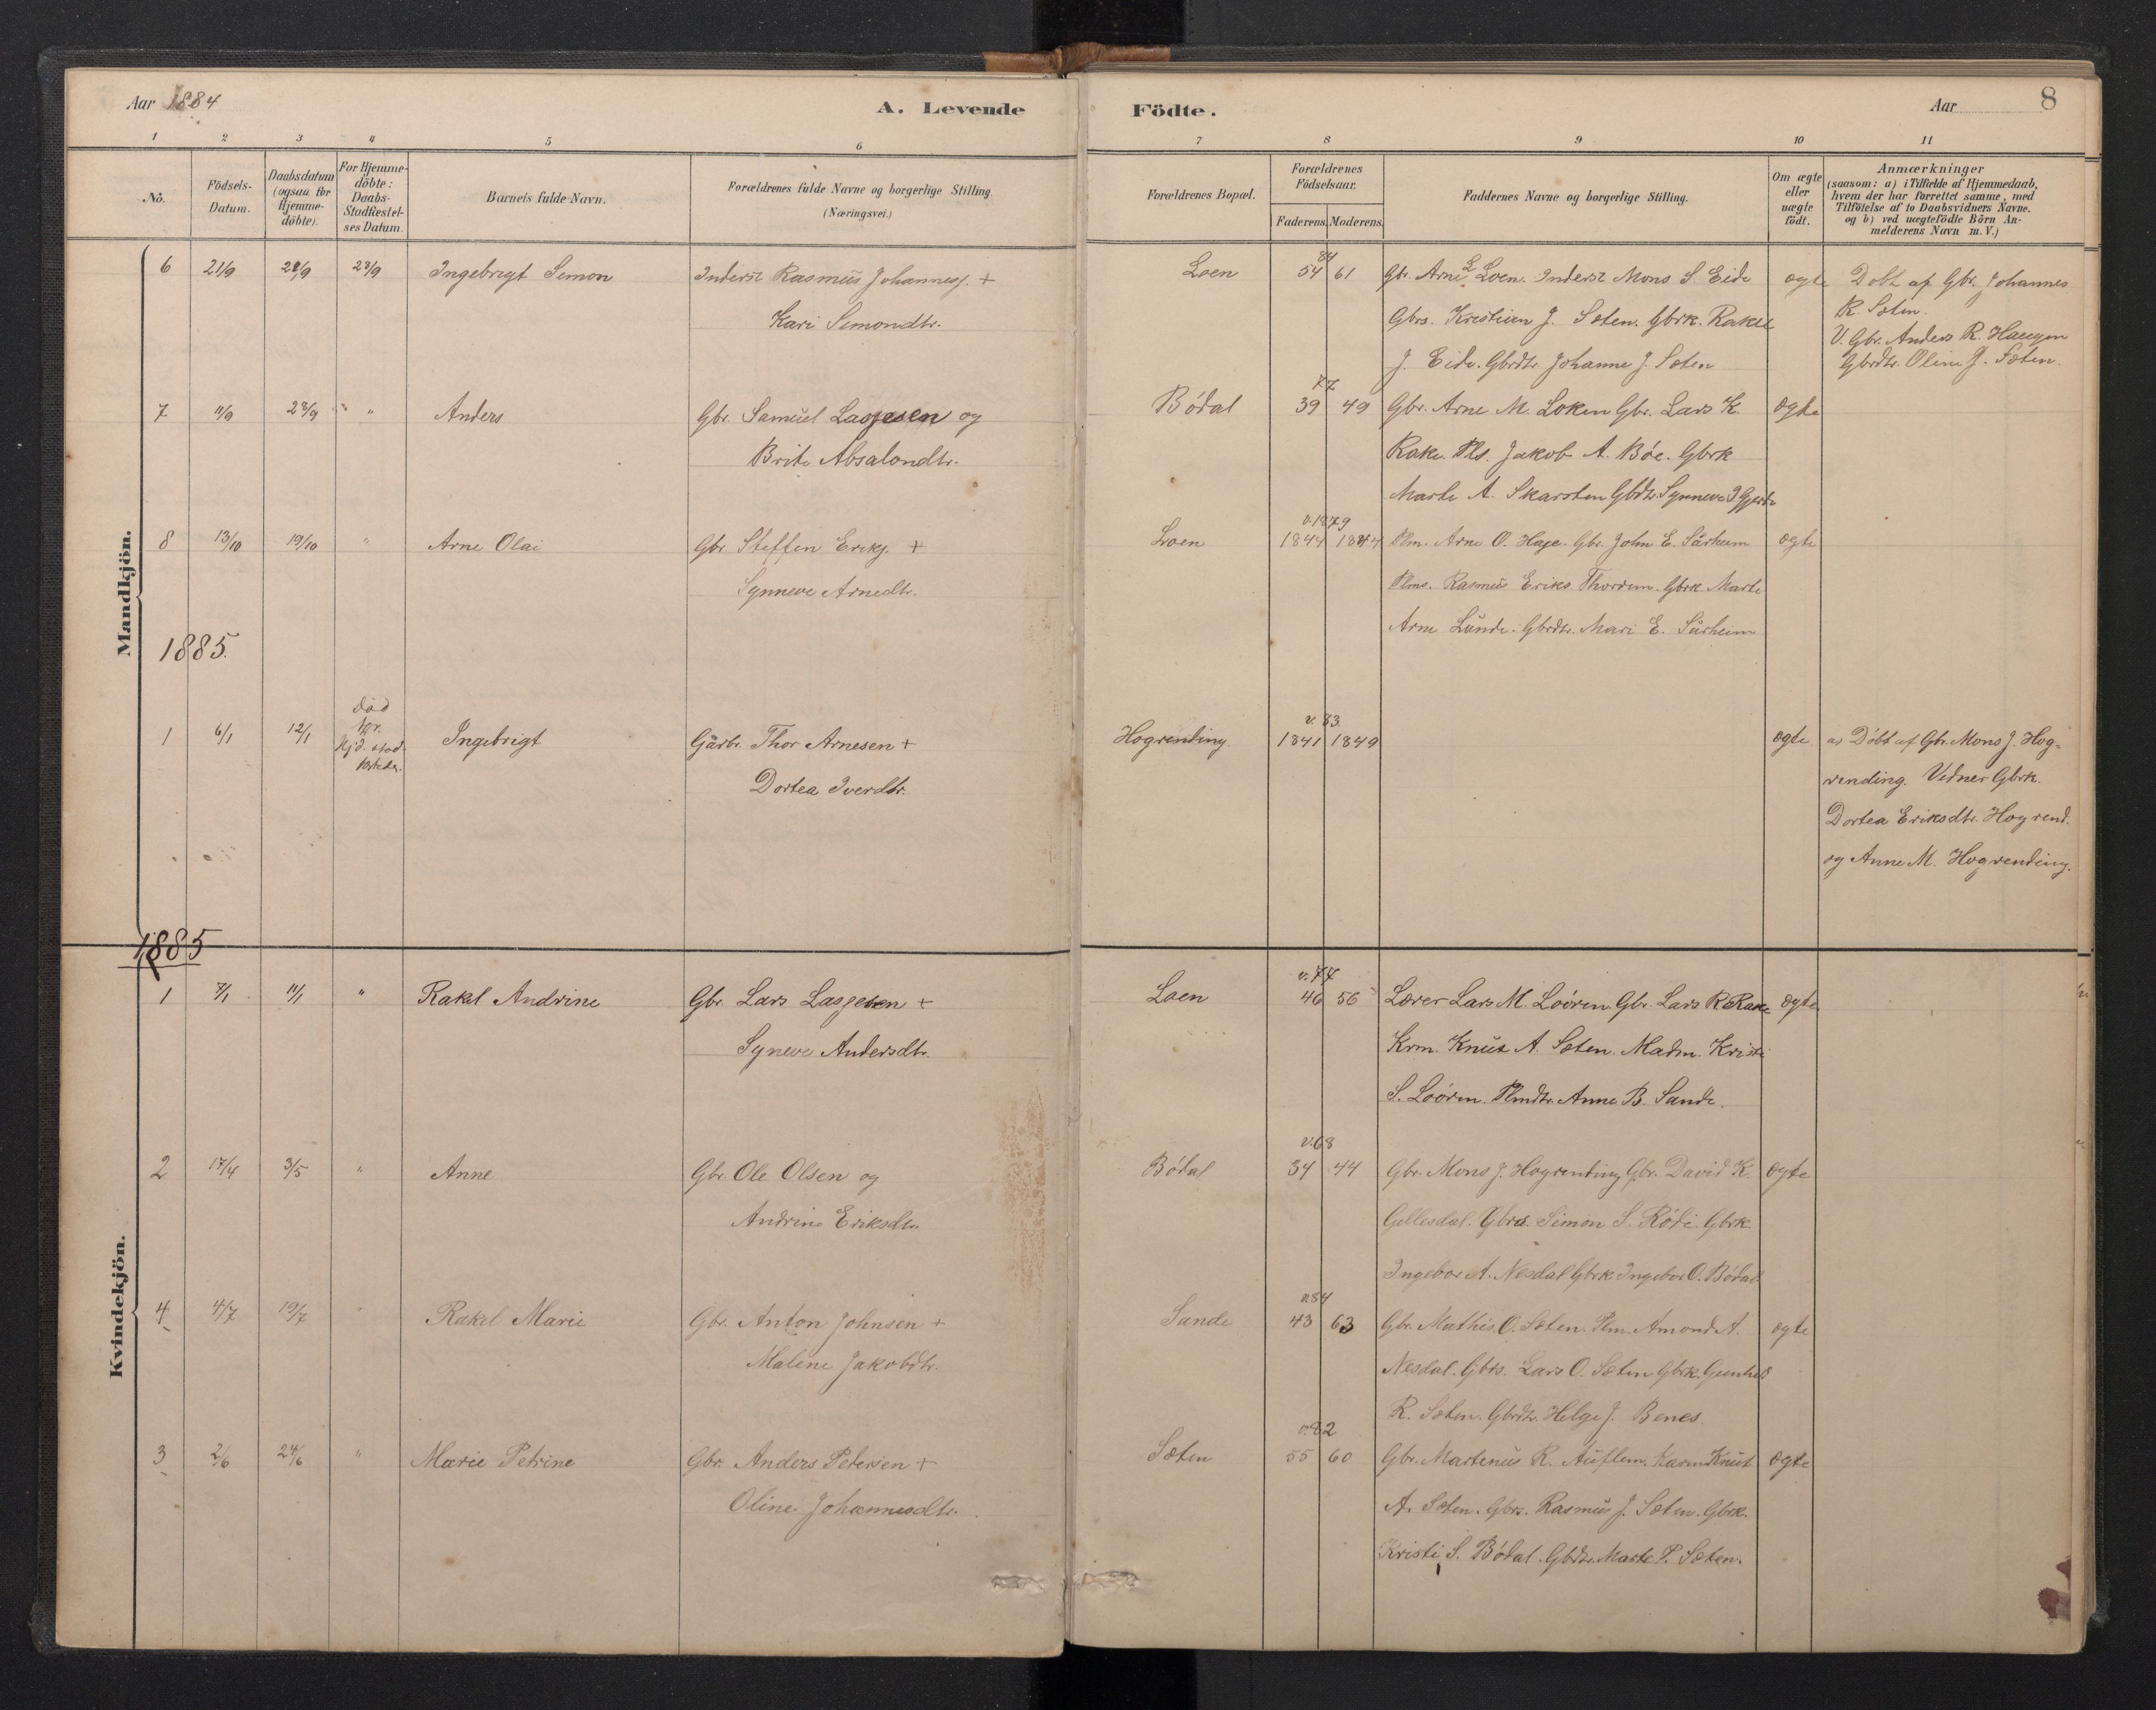 Aar 1884
A. Levende
Födte.
Aar
8
1 2 3 4 5 6 7 8 9 10 11
No.
Födsels-Datum.
Daabsdatum (ogsaa for Hjemme-döbte).
For Hjemme-döbte: Daabs-Stadfæstel-ses Datum.
Barnets fulde Navn.
Forældrenes fulde Navne og borgerlige Stilling (Næringsvei.)
Forældrenes Bopæl.
Forældrenes Födselsaar.
Faderens. Moderens.
Faddernes Navne og borgerlige Stilling.
Om ægte eller uægte födt.
Anmærkninger
(saasom: a) i Tilfælde af Hjemmedaab, hvem der har forrettet samme, med Tilföielse af to Daabsvidners Navne. og b) ved uægtefödte Börn An-melderens Navn m. V.)
Mandkjön.
6 21/9 21/9 28/9 Ingebrigt Simon
Inderst Rasmus Johannesj. +
Kari Simondtr.
Loen
84
54 61
Gbr. Arne L. Loen. Inderst Mons S. Eide
Gbrs. Kristian J. Sæten. Gbrk. Rakel
J. Eide. Gbrdtr. Johanne J. Sæten
ægte
Döbt af Gbr. Johannes
R. Sæten.
V. Gbr. Anders R. Haugen
Gbrdtr. Oline J. Sæten.
7 11/9 28/9 " Anders
Gbr. Samuel Lassesen og
Brite Absalondtr.
Bödal
77
39 49
Gbr. Arne M. Loken Gbr. Lars K.
Rake. Pls. Jakob A. Böe. Gbrk
Marte A. Skarsten Gbdtr. Synneve J Gjerde
ægte
8 13/10 19/10 " Arne Olai
Gbr. Steffen Erikj. +
Synneve Arnedtr.
Loen
v. 1879
1844 1844
Plm. Arne O. Hage. Gbr. John E. Sårheim
Plms. Rasmus Eriks Thordun. Gbrk Marte
Arne Lunde. Gbrdtr. Mari E. Sårheim
ægte
1885.
1 6/1 12/1
död
før
Hjd. stad-
fæstedes.
Ingebrigt
Gårbr. Thor Arnesen +
Dortea Iverdtr.
Hogrending
v. 83.
1841 1849
ægte
a) Döbt af Gbr. Mons J. Hog-
rending. Vidner Gbrk.
Dortea Eriksdtr. Hogrend.
og Anne M. Hogrending.
1885
Kvindekjön.
1 7/1 11/1 " Rakel Andrine
Gbr. Lars Lassesen +
Syneve Andersdtr.
Loen
v. 77
46 56
Lærer Lars M. Loören Gbr. Lars K Rake
Krm. Knut A. Sæten. Madm. Kristi
S. Loören. Plmdtr. Anne B. Sande.
ægte
2 17/4 3/5 " Anne
Gbr. Ole Olsen og
Andrine Eriksdtr.
Bödal
v. 68
34 44
Gbr. Mons J. Hogrending Gbr. David K.
Gellesdal. Gbrs. Simon S. Röde. Gbrk
Ingebor A. Nesdal Gbrk Ingebor O. Bödal
ægte
4 4/7 19/7 " Rakel Marie
Gbr. Anton Johnsen +
Malene Jakobdtr.
Sande
v. 84
43 63
Gbr. Mathis O. Sæten. Plm. Amond A.
Nesdal. Gbrs. Lars O. Sæten Gbrk. Gunhild
R. Sæten. Gbrdtr. Helge J. Benes.
ægte
3 2/6 24/6 " Marie Petrine
Gbr. Anders Petersen +
Oline Johannesdtr.
Sæten
v. 82
55 60
Gbr. Martenus R. Auflem. Karm Knut
A. Sæten. Gbrs. Rasmus J. Sæten. Gbrk.
Kristi S. Bödal. Gbdtr. Marte P. Sæten.
ægte